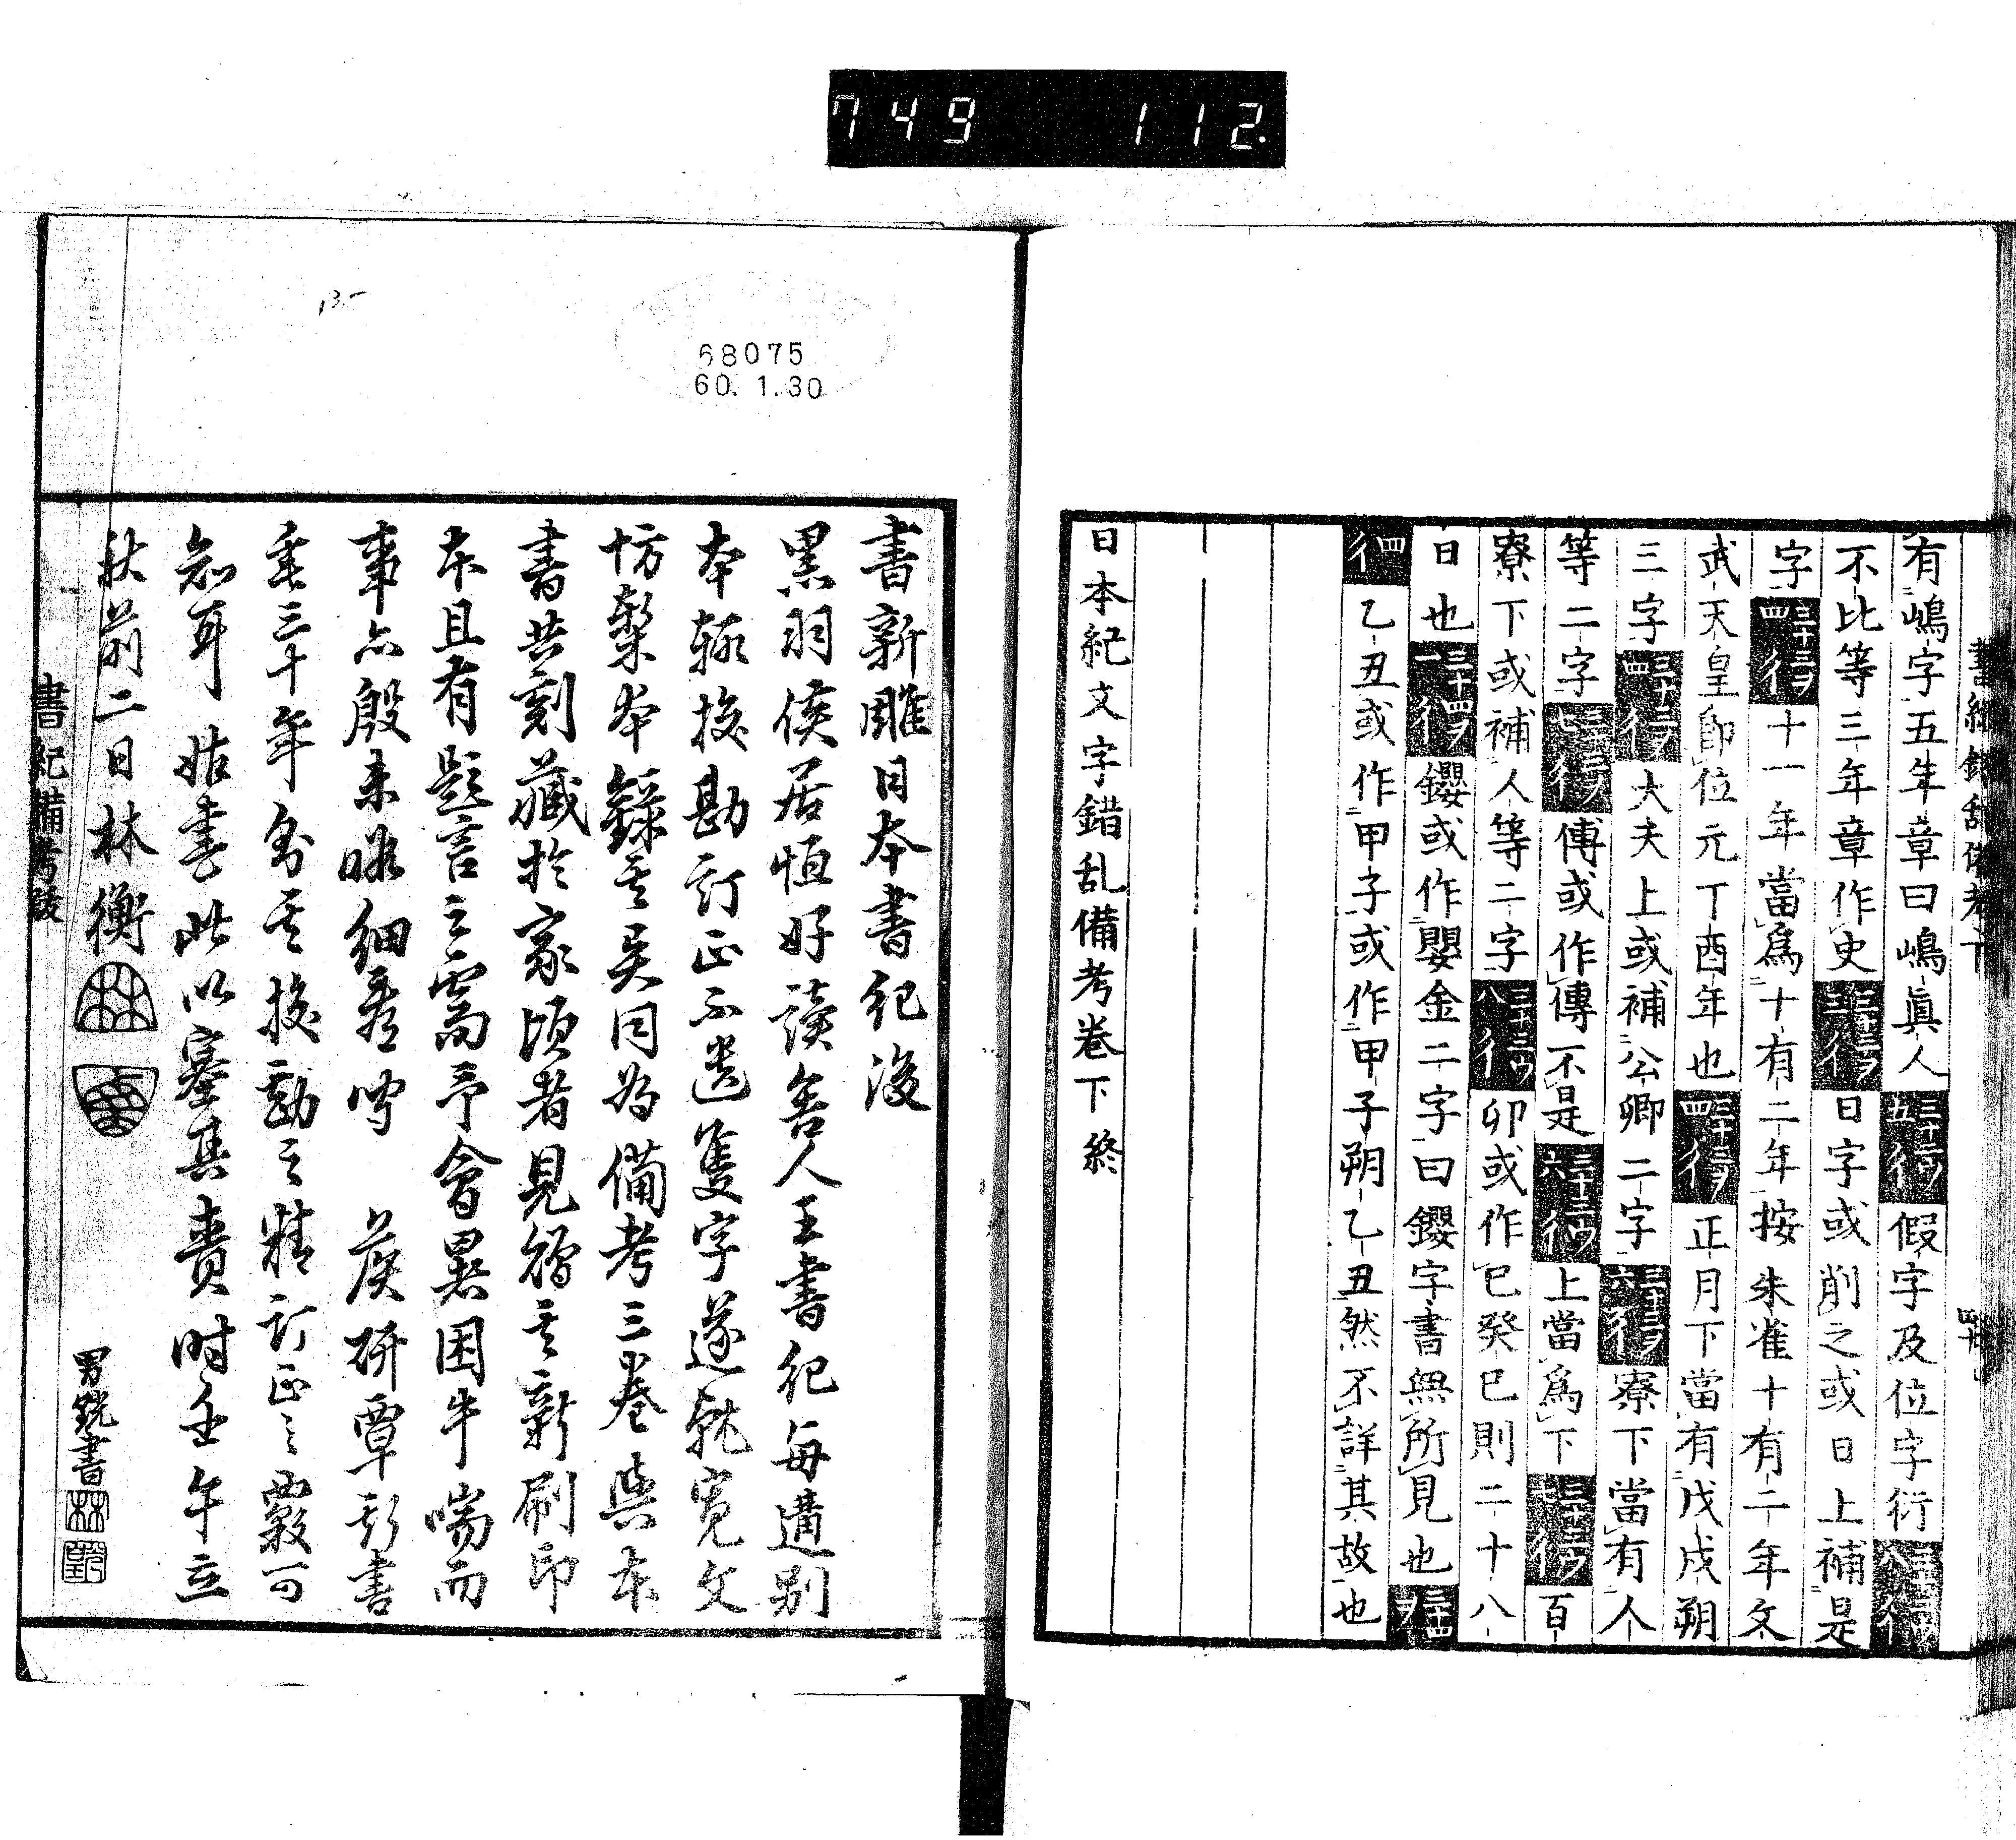 749 112.
書紀錯乱備考下
四十
有嶋字五年章曰嶋眞人三十二ヲ五行假字及位字衍三十三ヲ八行
不比等三年章作史三十三ヲ三行日字或削之或日上補是
字三十三ヲ四行十一年當爲十有二年按朱雀十有二年文
武天皇即位元丁酉年也三十三ヲ四行正月下當有戊戌朔
三字三十三ヲ四行大夫上或補公卿二字三十三ヲ六行寮下當有人
等二字三十三ヲ行傅或作傳不是三十三ヲ六行上當爲下三十三ヲ行百
寮下或補人等二字三十三ウ八行卯或作巳癸巳則二十八
日也三十四ヲ一行鑸或作嬰金二字曰鑸字書無所見也三十四ヲ
四行乙丑或作甲子或作甲子朔乙丑然不詳其故也
日本紀文字錯乱備考巻下終
68075
60. 1.30
書新雕日本書紀後
黒羽侯居恒好讀舍人王書紀毎遘別
本輒挍勘訂正不遺隻字遂就寛文
坊槧本錄其異同為備考三巻與本
書共刻藏於家頃者見貽其新刷印
本且有題言之需予會暑困牛喘而
事亦殷未暇細看吁侯研覃斯書
垂三十年則其挍勘之精訂正之覈可
知耳姑書此以塞其責時壬午立
秋前二日林衡
男銑書
書紀備考跋